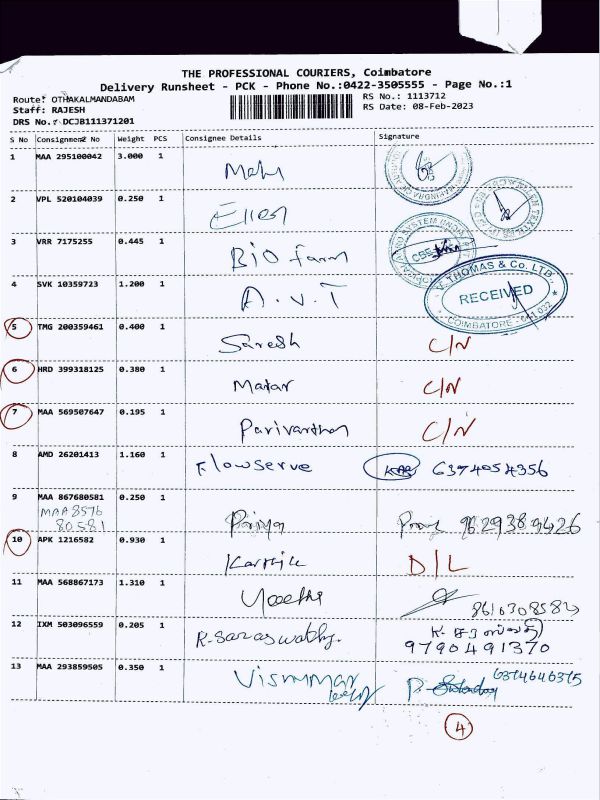 THE PROFESSIONAL COURIERS, Coimbatore
Delivery Runsheet - PCK - Phone No.:0422-3505555 - Page No.:1
Route: OTHAKALMANDABAM RS No.: 1113712
Staff: RAJESH RS Date: 08-Feb-2023
DRS No.: DCJB111371201
S No Consignment No Weight PCS Consignee Details Signature
1 MAA 295100042 3.000 1
2 VPL 520104039 0.250 1
3 VRR 7175255 0.445 1 Bio Farm
4 SVK 10359723 1.200 1 A.V.T
A. THOMAS & Co. LTD.,
RECEIVED
COIMBATORE - 641 032
5 TMG 200359461 0.400 1 Suresh C/N
6 HRD 399318125 0.380 1 C/N
7 MAA 569507647 0.195 1 Parivarthan C/N
8 AMD 26201413 1.160 1 Flowserve 6374054356
9 MAA 867680581 0.250 1 Priya 9629389426
MAA8576
80581
10 APK 1216582 0.930 1 Karthik D/L
11 MAA 568867173 1.310 1
12 IXM 503096559 0.205 1 K.Saraswathy.
9790491370
13 MAA 293859505 0.350 1 6374646375
4